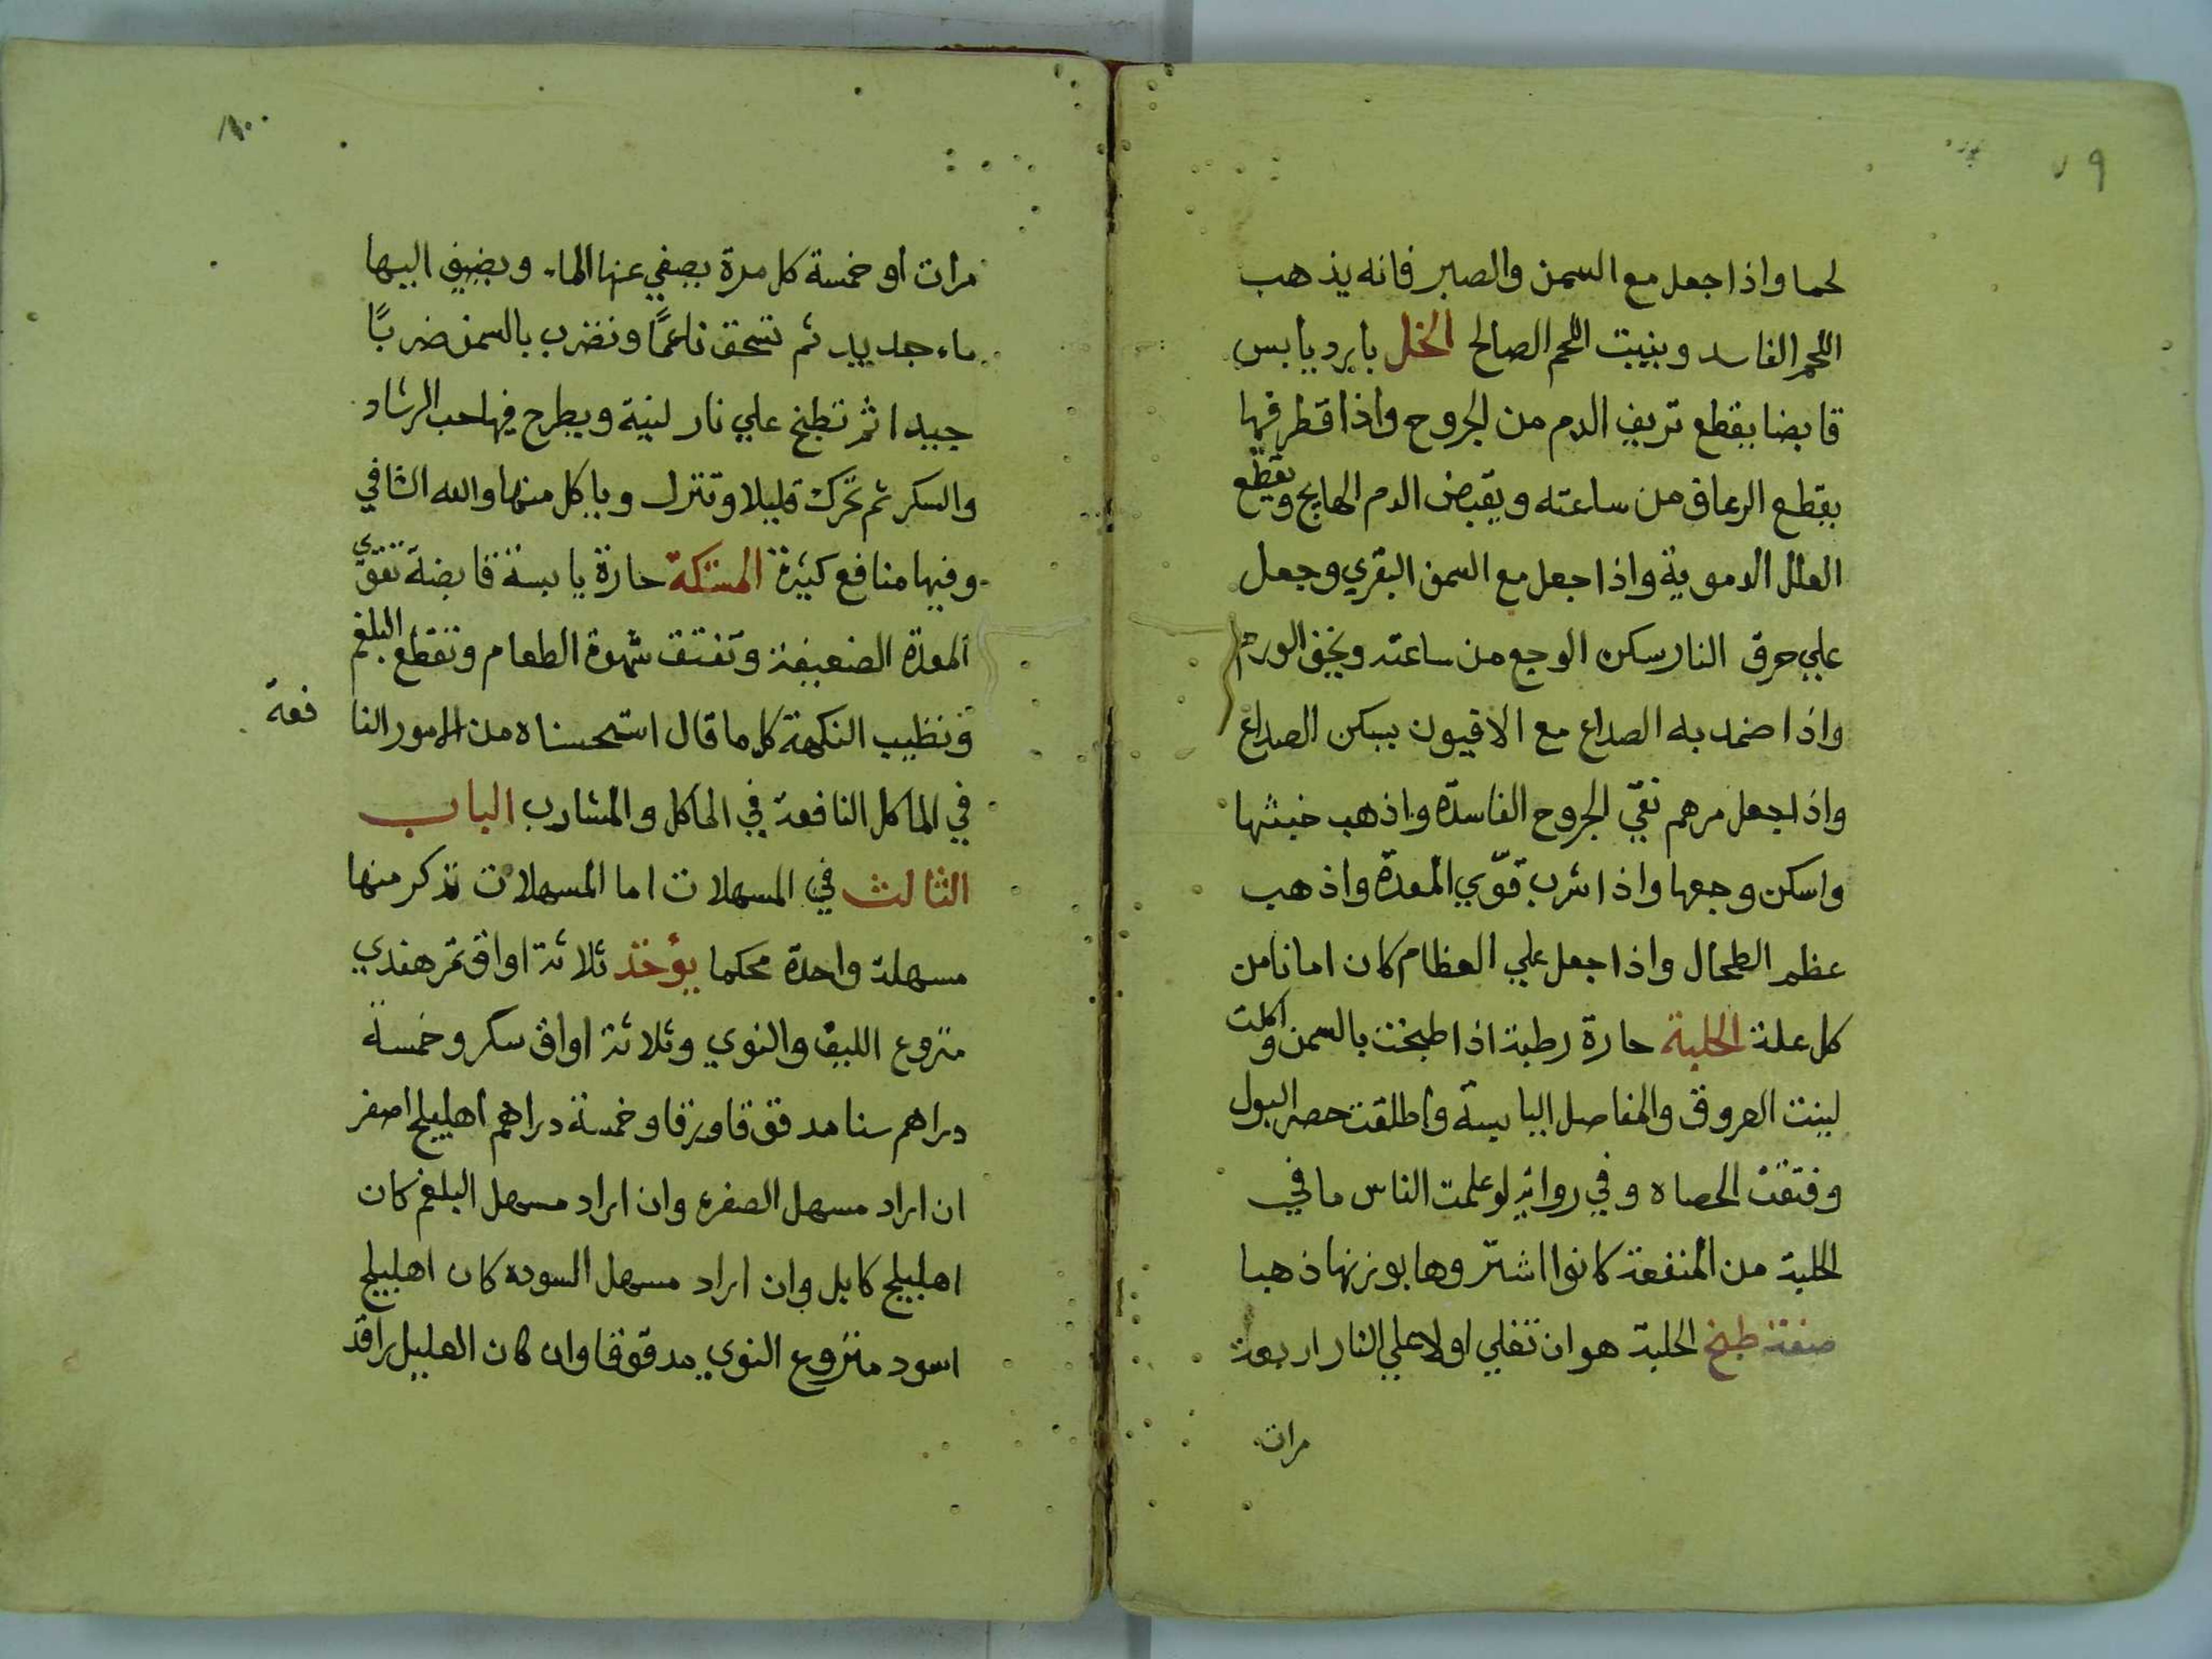 ٧٩
لحما واذا جعل مع السمن والصبر فانه يذهب
اللحم الفاسد وينبت اللحم الصالح الخل بارد يابس
قابضا يقطع نزيف الدم من الجروح واذا قطر فيها
يقطع الرعاف من ساعته ويقبض الدم الهايج ويقطّع
العلل الدموية واذا جعل مع السمن البقري وجعل
علي حرق النار سكن الوجع من ساعته ويخف الورم
واذا ضمد به الصداع مع الافيون يسكن الصداع
واذا جعل مرهم نقي الجروح الفاسدة واذهب خبثها
واسكن وجعها واذا شرب قوّي المعدة واذهب
عظم الطحال واذا جعل علي العظام كان امانا من
كل علة الحلبة حارة رطبة اذا طبخت بالسمن واكلت
لينت العروق والمفاصل اليابسة واطلقت حصر البول
وفتقت الحصاه وفي رواية لو علمت الناس ما في
الحلبة من المنفعة كانوا اشتروها بوزنها ذهبا
صفة طبخ الحلبة هو ان تغلي اولا علي النار اربعة
مرات
مرات او خمسة كل مرة يصفي عنها الماء ويضيف اليها
ماء جديد ثم تسحق ناعمًا وتضرب بالسمن ضربًا
جيدا ثم تطبخ علي نار لينة ويطرح فيها حب الرشاد
والسكر ثم تحرك قليلا وتنزل وياكل منها والله الشافي
وفيها منافع كثيرة المستكة حارة يابسة قابضة تقوّي
المعدة الضعيفة وتفتق شهوة الطعام وتقطع البلغم
وتطيب النكهة كل ما قال استحسناه من الامور النا
فعة
في الماكل النافعة في الماكل والمشارب الباب
الثالث في المسهلات اما المسهلات نذكر منها
مسهلة واحدة محكما يؤخذ ثلاثة اواق تمر هندي
منزوع الليف والنوي وثلاثة اواق سكر وخمسة
دراهم سنا مدقوقا ورقا وخمسة دراهم اهليلج اصفر
ان اراد مسهل الصفره وان اراد مسهل البلغم كان
اهليلج كابل وان اراد مسهل السوده كان اهليلج
اسود منزوع النوي مدقوقا وان كان الهليل راقد